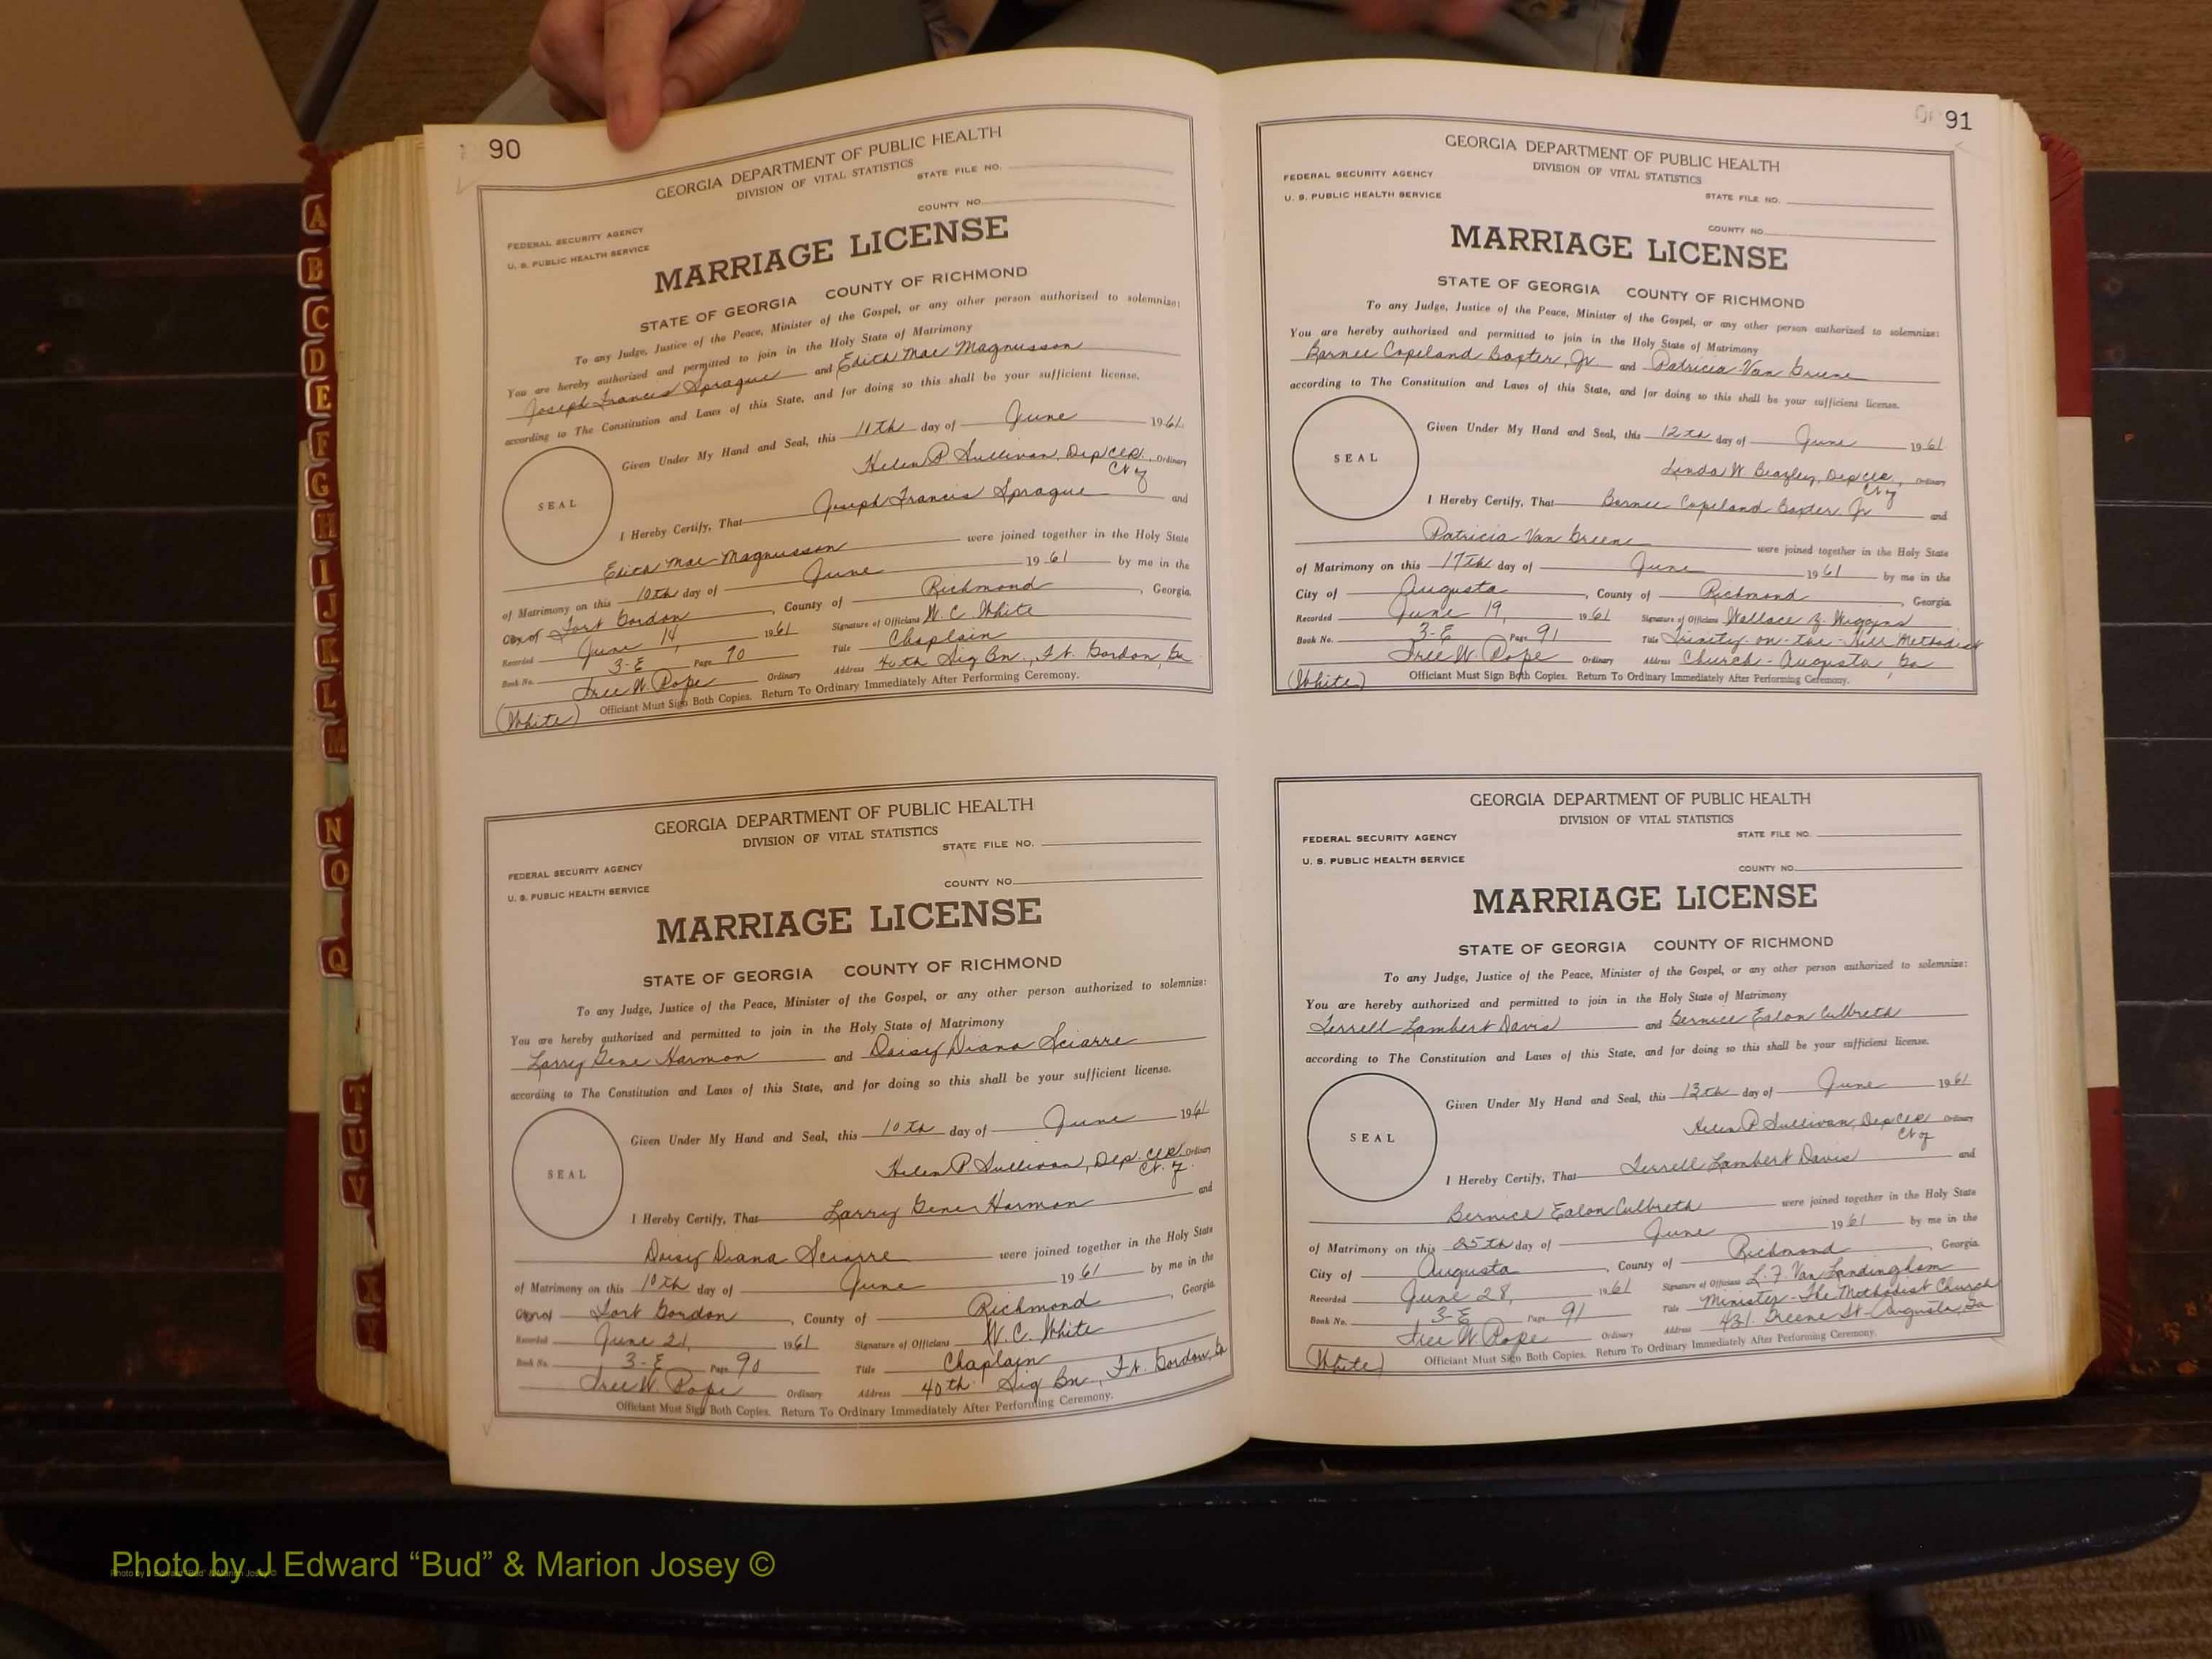 90
GEORGIA DEPARTMENT OF PUBLIC HEALTH
DIVISION OF VITAL STATISTICS
STATE FILE NO.
COUNTY NO.
FEDERAL SECURITY AGENCY
U. S. PUBLIC HEALTH SERVICE
MARRIAGE LICENSE
STATE OF GEORGIA COUNTY OF RICHMOND
To any Judge, Justice of the Peace, Minister of the Gospel, or any other person authorized to solemnize:
You are hereby authorized and permitted to join in the Holy State of Matrimony
Joseph Francis Sprague and Edith Mae Magnusson
according to The Constitution and Laws of this State, and for doing so this shall be your sufficient license.
SEAL
Given Under My Hand and Seal, this day of June 1961
Helen P. Sullivan, Dep Clk. Ordinary
I Hereby Certify, That Joseph Francis Sprague and
Edith Mae Magnusson were joined together in the Holy State
of Matrimony on this 10th day of June 1961 by me in the
Fort Gordon, County of Richmond, Georgia.
Recorded June 14, 1961 Signature of Officiant W. C. White
Book No. 3-E Page 90 Title Chaplain
Ordinary Address 40th Sig Bn., Ft. Gordon, Ga
(White) Officiant Must Sign Both Copies. Return To Ordinary Immediately After Performing Ceremony.
GEORGIA DEPARTMENT OF PUBLIC HEALTH
DIVISION OF VITAL STATISTICS
STATE FILE NO.
FEDERAL SECURITY AGENCY
COUNTY NO.
U. S. PUBLIC HEALTH SERVICE
MARRIAGE LICENSE
STATE OF GEORGIA COUNTY OF RICHMOND
To any Judge, Justice of the Peace, Minister of the Gospel, or any other person authorized to solemnize:
You are hereby authorized and permitted to join in the Holy State of Matrimony
Larry Gene Harmon and Daisy Diana Sciarre
according to The Constitution and Laws of this State, and for doing so this shall be your sufficient license.
SEAL
Given Under My Hand and Seal, this 10th day of June 1961
Helen P. Sullivan, Dep. Clk Ordinary
I Hereby Certify, That Larry Gene Harmon and
Daisy Diana Sciarre were joined together in the Holy State
of Matrimony on this 10th day of June 1961 by me in the
Fort Gordon, County of Richmond, Georgia.
Recorded June 21, 1961 Signature of Officiant W. C. White
Book No. 3-E Page 90 Title Chaplain
Ordinary Address 40th Sig Bn., Ft. Gordon, Ga
Officiant Must Sign Both Copies. Return To Ordinary Immediately After Performing Ceremony.
91
GEORGIA DEPARTMENT OF PUBLIC HEALTH
DIVISION OF VITAL STATISTICS
FEDERAL SECURITY AGENCY
U. S. PUBLIC HEALTH SERVICE
STATE FILE NO.
COUNTY NO.
MARRIAGE LICENSE
STATE OF GEORGIA COUNTY OF RICHMOND
To any Judge, Justice of the Peace, Minister of the Gospel, or any other person authorized to solemnize:
You are hereby authorized and permitted to join in the Holy State of Matrimony
Barnee Copeland Baxter, Jr and Patricia Van Greene
according to The Constitution and Laws of this State, and for doing so this shall be your sufficient license.
SEAL
Given Under My Hand and Seal, this 12th day of June 1961
Linda W. Beazley, Dep Clk, Ordinary
I Hereby Certify, That Barnee Copeland Baxter Jr and
Patricia Van Greene were joined together in the Holy State
of Matrimony on this 17th day of June 1961 by me in the
City of Augusta, County of Richmond, Georgia.
Recorded June 19, 1961 Signature of Officiant Wallace Z. Wiggins
Book No. 3-E Page 91 Title Trinity-on-the-Hill Methodist
Ordinary Address Church - Augusta, Ga
(White) Officiant Must Sign Both Copies. Return To Ordinary Immediately After Performing Ceremony.
GEORGIA DEPARTMENT OF PUBLIC HEALTH
DIVISION OF VITAL STATISTICS
FEDERAL SECURITY AGENCY
STATE FILE NO.
U. S. PUBLIC HEALTH SERVICE
COUNTY NO.
MARRIAGE LICENSE
STATE OF GEORGIA COUNTY OF RICHMOND
To any Judge, Justice of the Peace, Minister of the Gospel, or any other person authorized to solemnize:
You are hereby authorized and permitted to join in the Holy State of Matrimony
Terrell Lambert Davis and Bernice Ealon Culbreth
according to The Constitution and Laws of this State, and for doing so this shall be your sufficient license.
SEAL
Given Under My Hand and Seal, this 13th day of June 1961
Helen P. Sullivan, Dep Clk Ordinary
I Hereby Certify, That Terrell Lambert Davis and
Bernice Ealon Culbreth were joined together in the Holy State
of Matrimony on this 25th day of June 1961 by me in the
City of Augusta, County of Richmond, Georgia.
Recorded June 28, 1961 Signature of Officiant L. F. Van Landingham
Book No. 3-E Page 91 Title Minister - The Methodist Church
Ordinary Address 431 Greene St - Augusta, Ga
(White) Officiant Must Sign Both Copies. Return To Ordinary Immediately After Performing Ceremony.
A
B
C
D
E
F
G
H
I
J
K
L
M
N
O
Q
T
U
V
X
Y
Photo by J Edward “Bud” & Marion Josey ©
Photo by J Edward “Bud” & Marion Josey ©